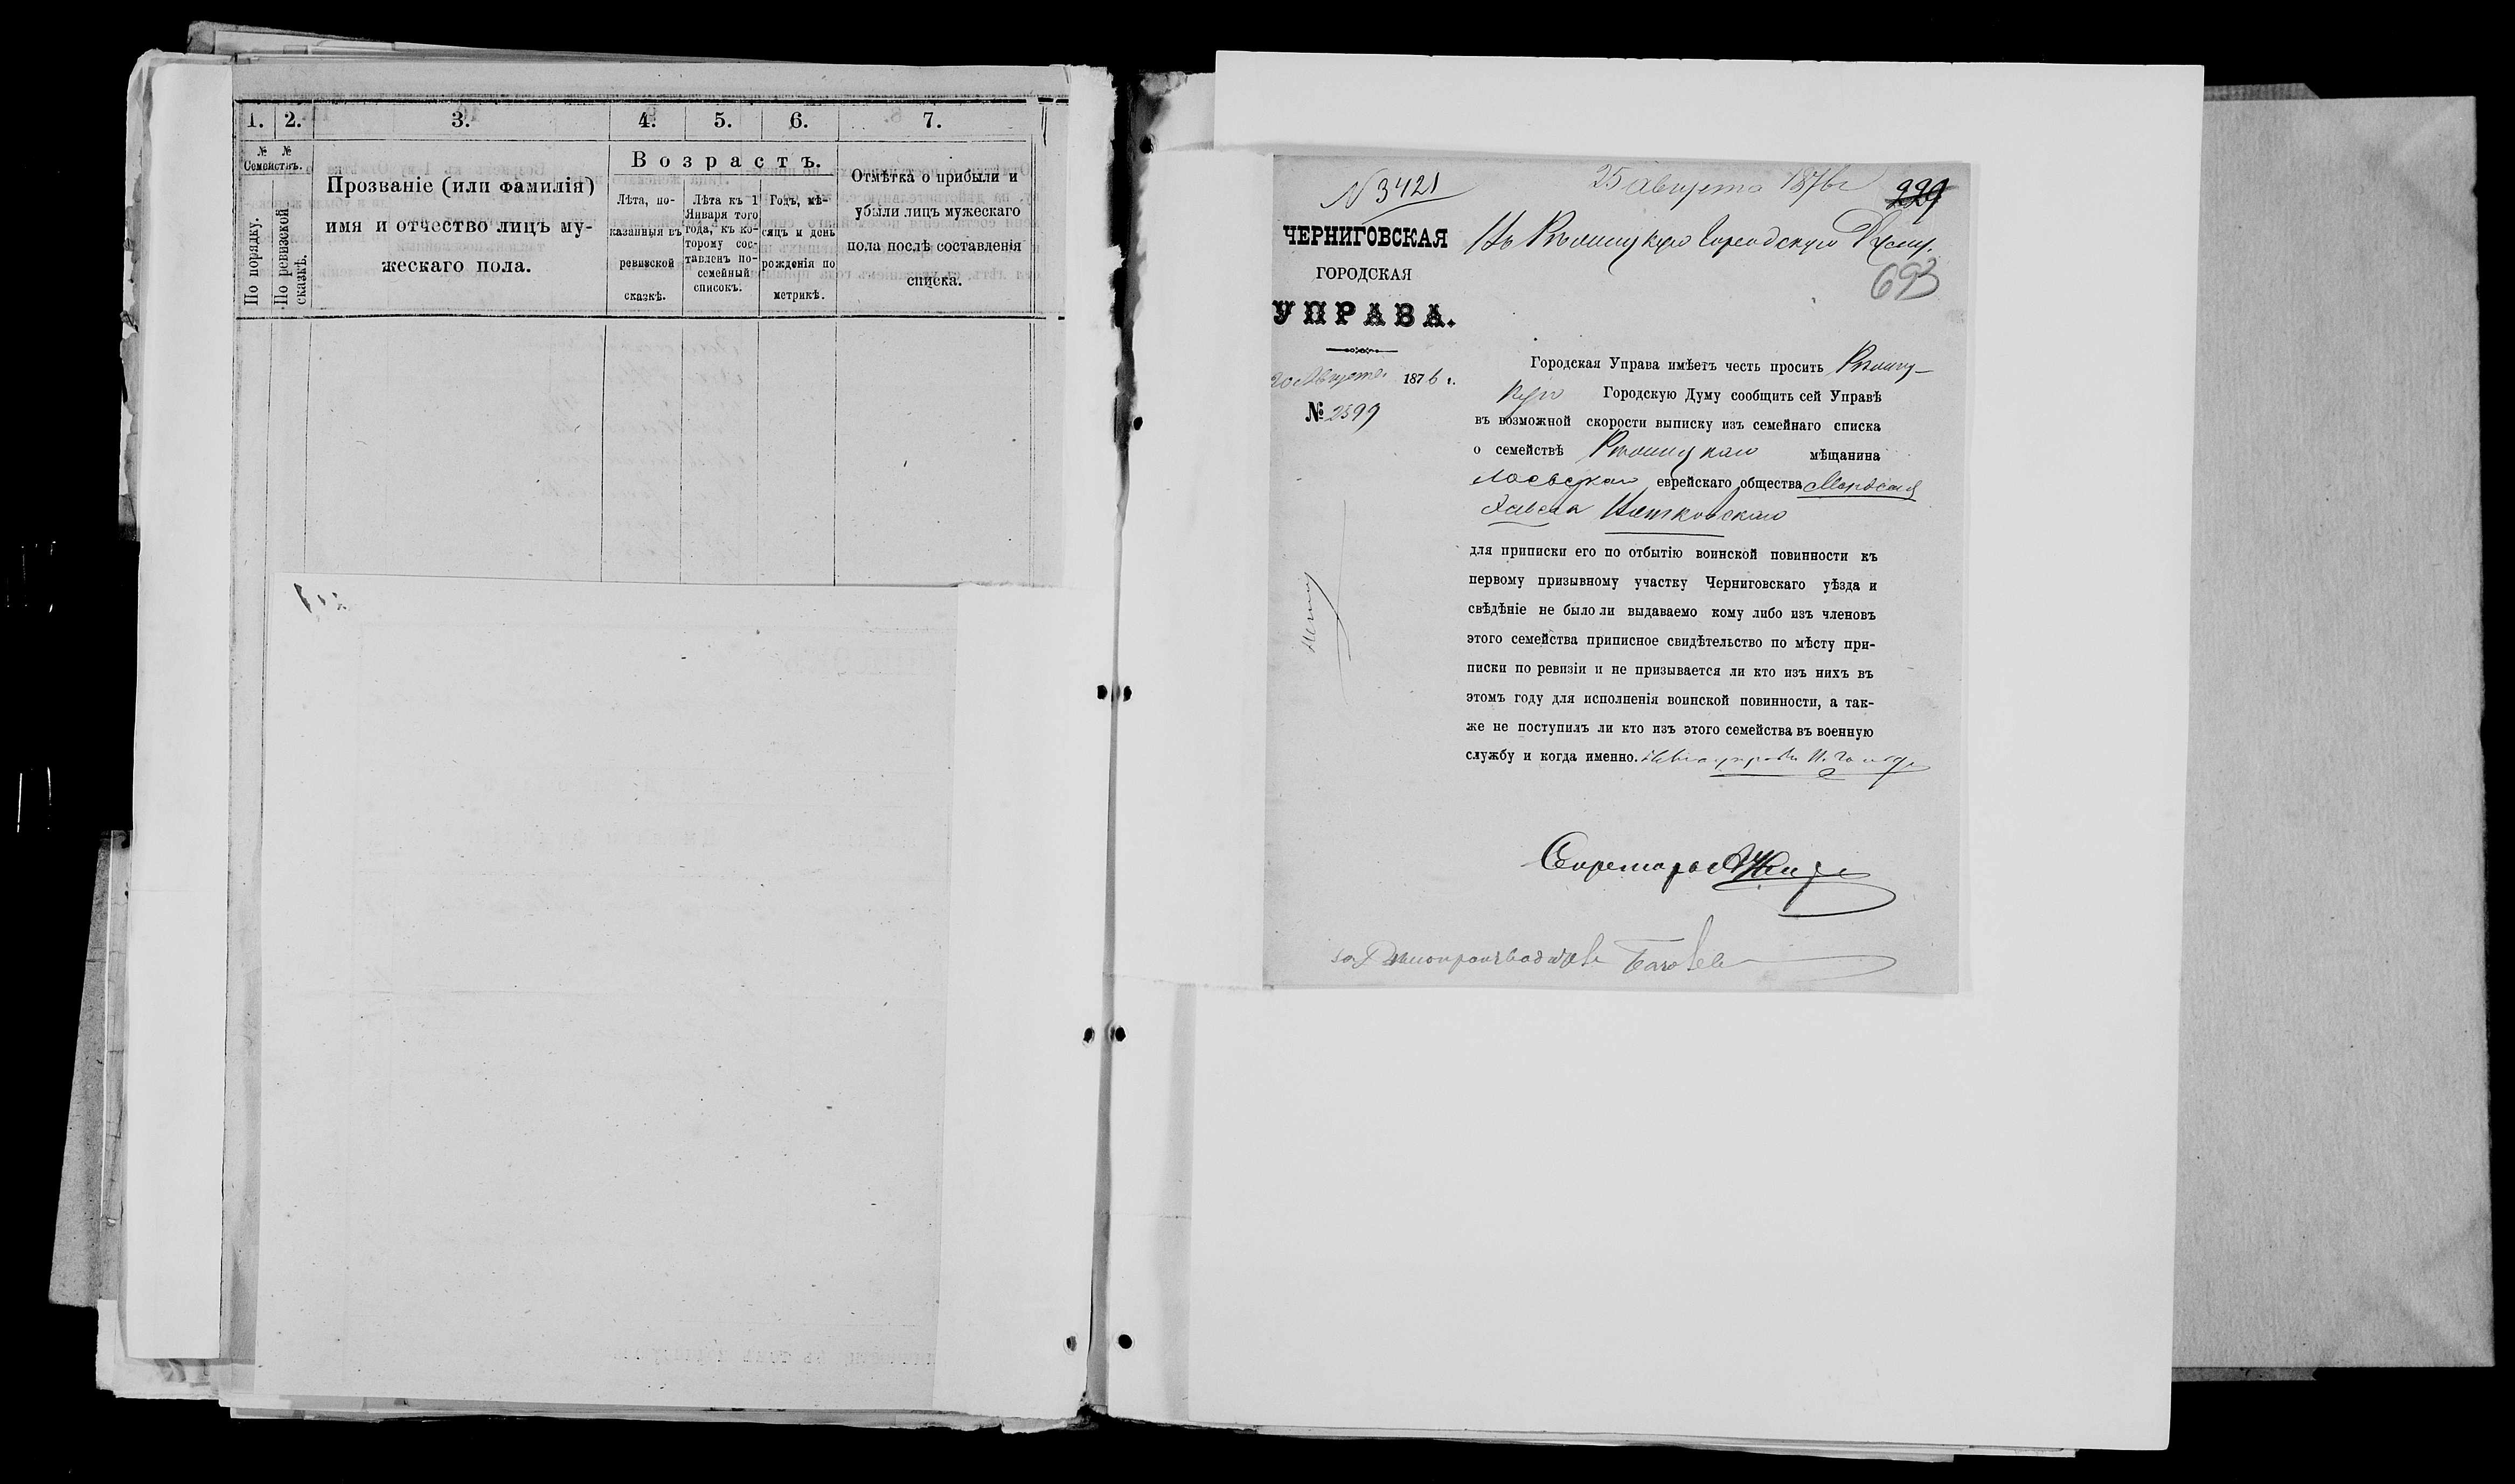 1. 2. 3. 4. 5. 6. 7.
№ №
Семействъ.
По порядку.
По ревизской сказкѣ.
Прозваніе (или фамилія)
имя и отчество лицъ му-
жескаго пола.
Возрастъ.
Лѣта, по-
казанныя въ
ревизской
сказкѣ.
Лѣта къ 1
Января того
года, къ ко-
торому сос-
тавленъ по-
семейный
списокъ.
Годъ, мѣ-
сяцъ и день
рожденія по
метрикѣ.
Отмѣтка о прибыли и
убыли лицъ мужескаго
пола послѣ составленія
списка.
N 3421
25 Августа 1876 г
229
ЧЕРНИГОВСКАЯ
ГОРОДСКАЯ
УПРАВА.
20 Августа 1876 г.
№ 2399
Въ Рѣчицкую Городскую Думу
693
Городская Управа имѣетъ честь просить Рѣчиц-
кую Городскую Думу сообщить сей Управѣ
въ возможной скорости выписку изъ семейнаго списка
о семействѣ Рѣчицкаго мѣщанина
Лоевскаго еврейскаго общества
для приписки его по отбытію воинской повинности къ
первому призывному участку Черниговскаго уѣзда и
свѣдѣніе не было ли выдаваемо кому либо изъ членовъ
этого семейства приписное свидѣтельство по мѣсту при-
писки по ревизіи и не призывается ли кто изъ нихъ въ
этомъ году для исполненія воинской повинности, а так-
же не поступилъ ли кто изъ этого семейства въ военную
службу и когда именно.
Секретарь
За Дѣлопроизводителя